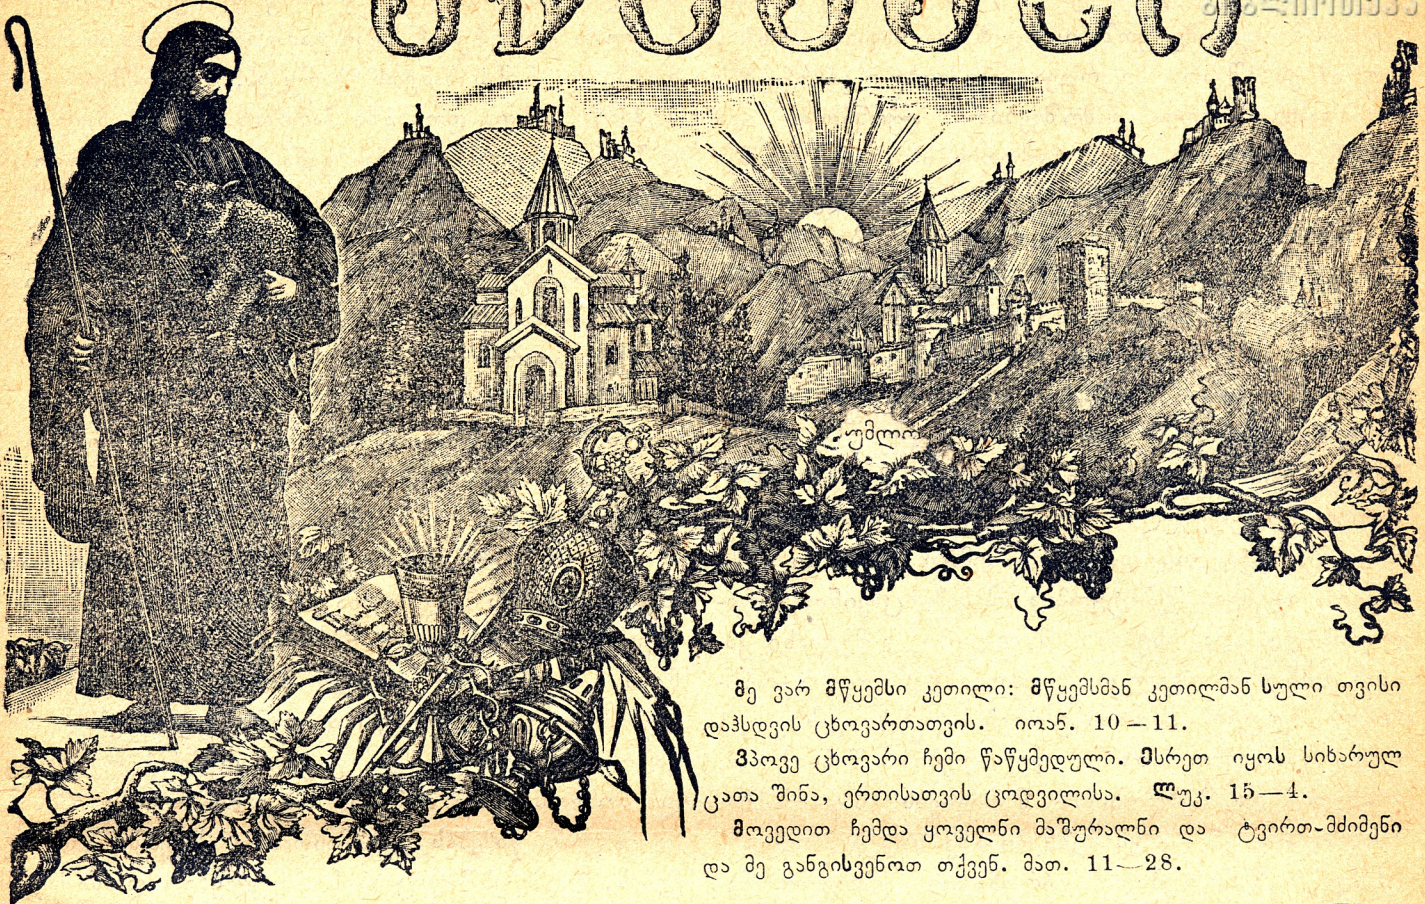 უმლო
მე ვარ მწყემსი კეთილი: მწყემსმან კეთილმან სული თვისი
დაჰსდვის ცხოვართათვის. იოან. 10—11.
ვჰპოვე ცხოვარი ჩემი წაწყმედული. ესრეთ იყოს სიხარულ
ცათა შინა, ერთისათვის ცოდვილისა. ლუკ. 15—4.
მოვედით ჩემდა ყოველნი მაშურალნი და ტვირთ-მძიმენი
და მე განგისვენოთ თქვენ. მათ. 11—28.